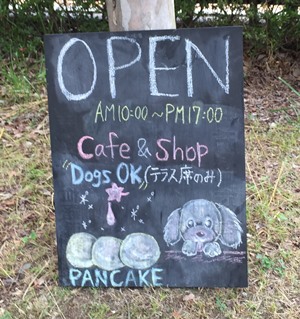 OPEN
AM10:00～PM17:00
Cafe & Shop
"Dogs OK"(テラス席のみ)
PANCAKE